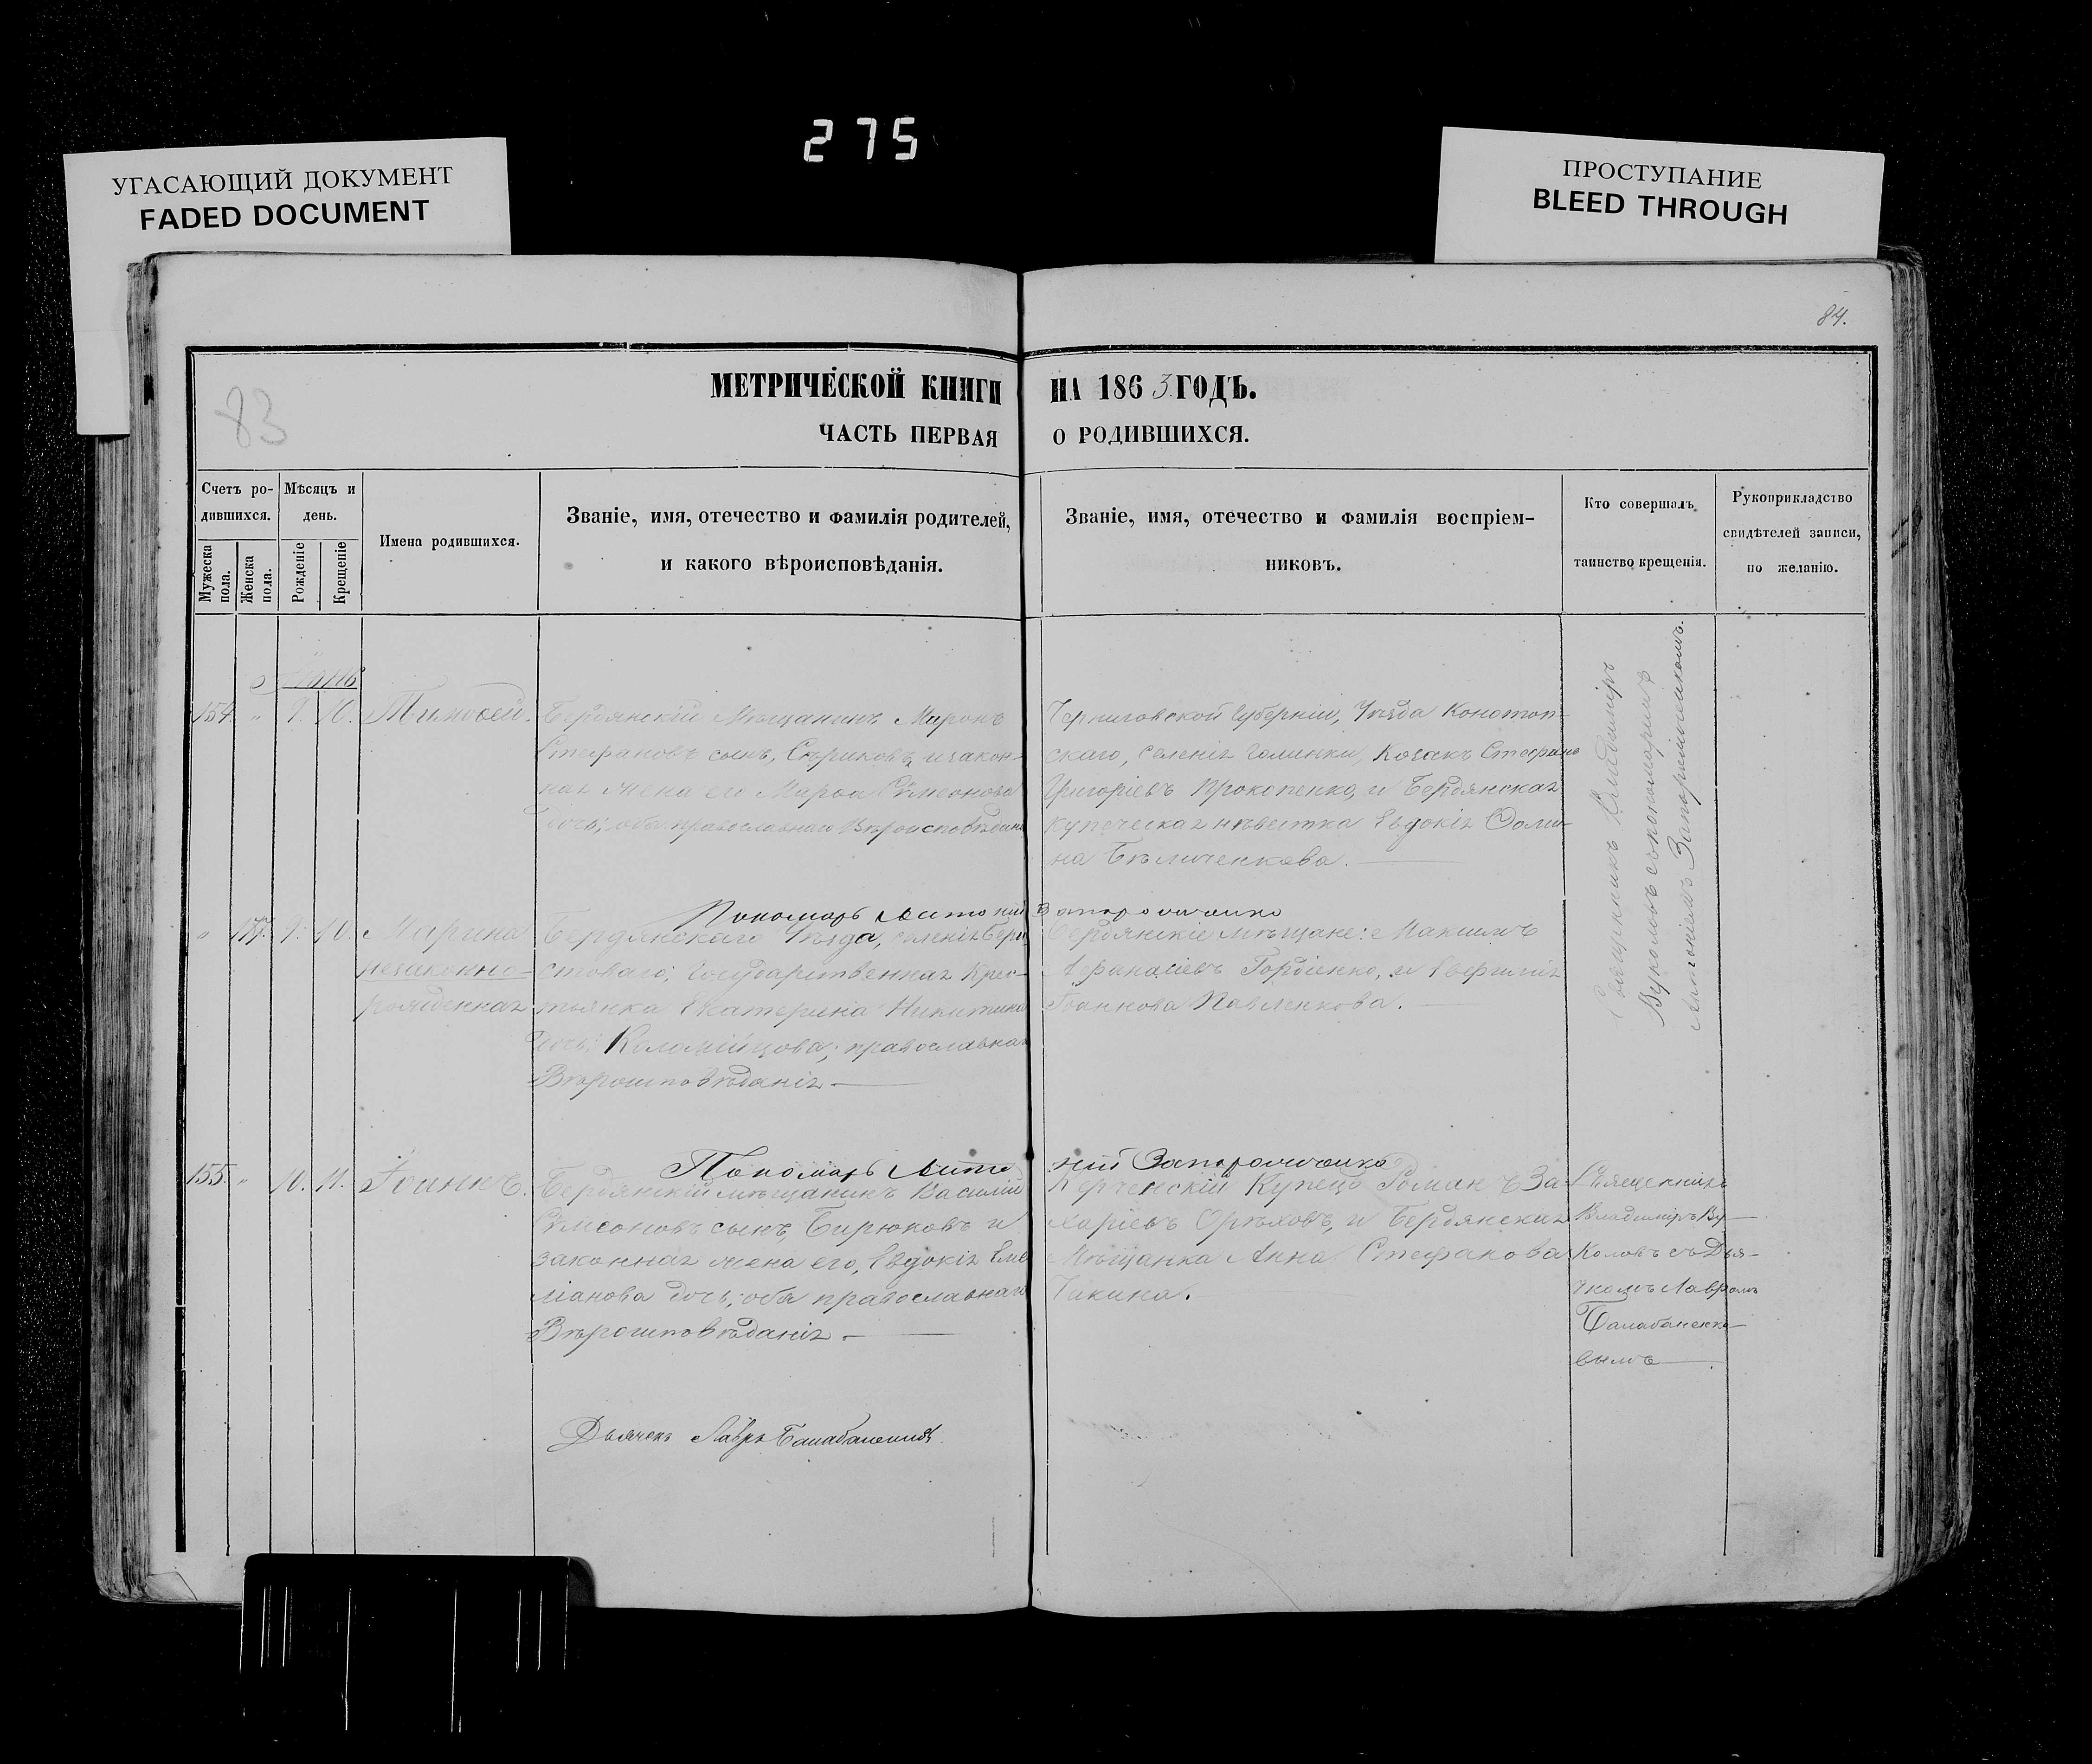 275
УГАСАЮЩИЙ ДОКУМЕНТ
FADED DOCUMENT
ПРОСТУПАНИЕ
BLEED THROUGH
84.
83
МЕТРИЧЕСКОЙ КНИГИ НА 1863 ГОДЪ.
ЧАСТЬ ПЕРВАЯ О РОДИВШИХСЯ.
Счетъ ро-
дившихся.
Мужеска пола.
Женска пола.
Мѣсяцъ и
день.
Рожденіе
Крещеніе
Имена родившихся.
Званіе, имя, отечество и фамилія родителей,
и какого вѣроисповѣданія.
Званіе, имя, отечество и фамилія воспріем-
никовъ.
Кто совершалъ
таинство крещенія.
Рукоприкладство
свидѣтелей записи,
по желанію.
154. " 9. 10. Тимоѳей.
Бердянскій Мѣщанинъ Миронъ
Стефановъ сынъ, Сѣриковъ, и закон-
ная жена его Марѳа Сѵмеонова
дочь; оба православнаго Вѣроисповѣданія
Черниговской Губерніи, Уѣзда Конотоп-
скаго, селенія Голинки, Козакъ Стефанъ
Григоріевъ Прокопенко, и Бердянская
купеческая невѣстка Евдокія Ѳоми-
на Бѣличенкова.
Священникъ Владиміръ
Вуколовъ съ пономаремъ
Антоніемъ Запорожченкомъ.
Пономарь Антоній Запорожченко
" 9. 10. Марина
незаконно-
рожденная
Бердянскаго Уѣзда, селенія Бере-
стоваго; Государственная Крес-
тьянка Екатерина Никитина
дочь; Коломійцова; православнаго
Вѣроисповѣданія
Бердянскіе мѣщане: Максимъ
Афанасіевъ Гордіенко, и Евфимія
Іоаннова Павленкова.
Пономарь Антоній Запорожченко
155. " 10. 11. Іоаннъ.
Бердянскій мѣщанинъ Василій
Сѵмеоновъ сынъ, Бирюковъ и
законная жена его, Евдокія Еме
ліанова дочь; оба православнаго
Вѣроисповѣданія
Керченскій Купецъ Романъ За-
харіевъ Орѣховъ, и Бердянская
Мѣщанка Анна Стефанова
Священникъ
Владиміръ Ву-
коловъ съ Дья-
чкомъ Лавромъ
Балабаненко-
вымъ
Дьячекъ Лавръ Балабаненковъ